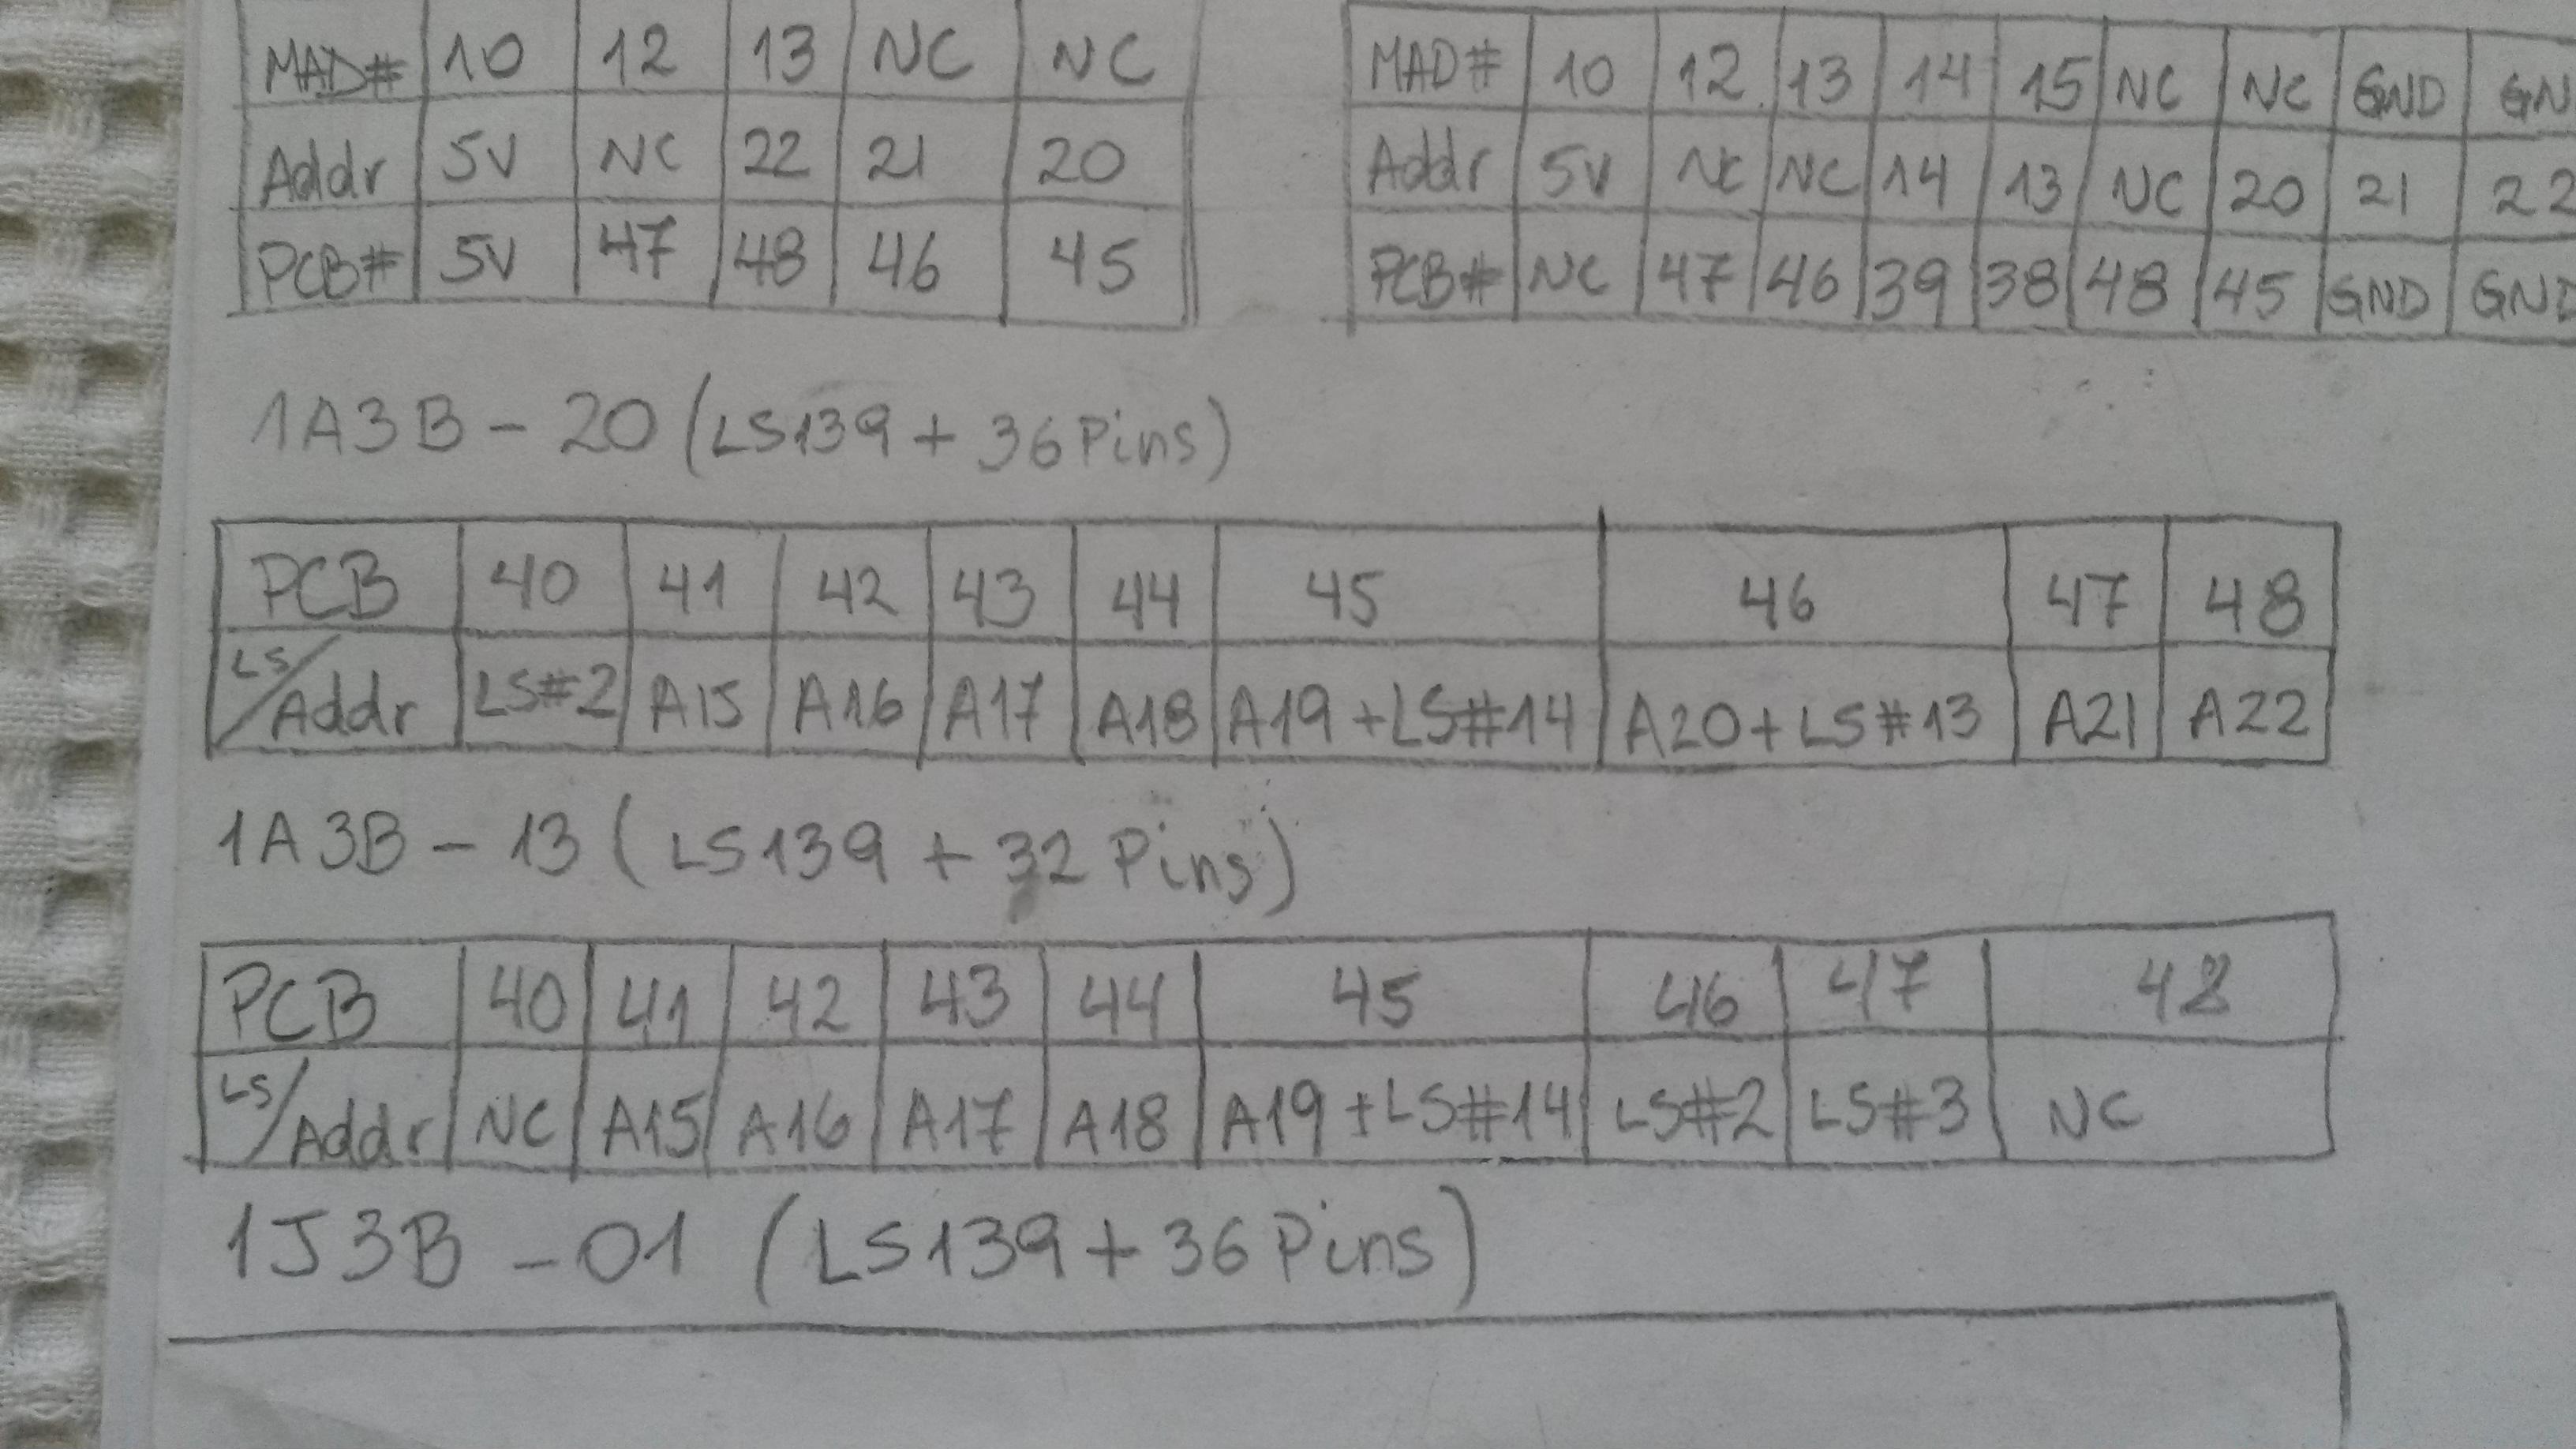 MAD# 10 12 13 NC NC
Addr 5V NC 22 21 20
PCB# 5V 47 48 46 45
MAD# 10 12 13 14 15 NC NC GND GN
Addr 5V NC NC 14 13 NC 20 21 22
PCB# NC 47 46 39 38 48 45 GND GND
1A3B - 20 (LS139 + 36 Pins)
PCB 40 41 42 43 44 45 46 47 48
LS/Addr LS#2 A15 A16 A17 A18 A19 + LS#14 A20 + LS#13 A21 A22
1A3B - 13 (LS139 + 32 Pins)
PCB 40 41 42 43 44 45 46 47 48
LS/Addr NC A15 A16 A17 A18 A19 + LS#14 LS#2 LS#3 NC
1J3B - 01 (LS139 + 36 Pins)